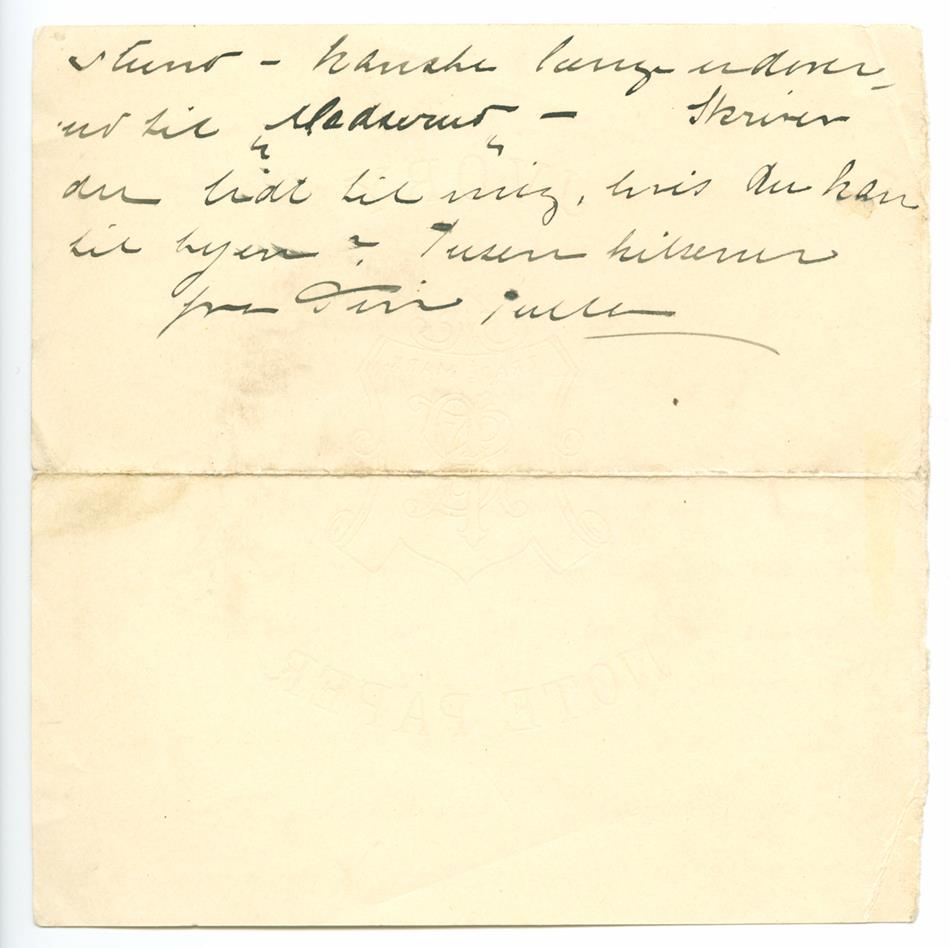 stund – kanske længe udover,
ud til „Madserud“ – Skriver
du lidt til mig, hvis Du kan
til byen? Tusen hilsener
fra Din Tulla
TRADE MARK
NOTE PAPER